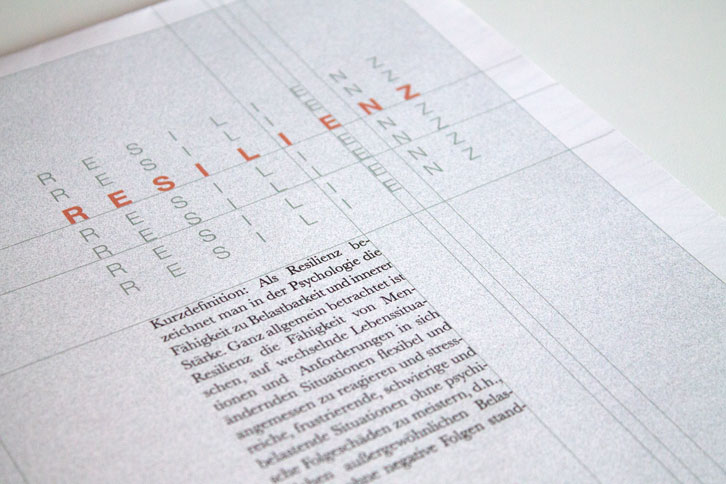 R E S I L I E N Z
R E S I L I E N Z
R E S I L I E N Z
R E S I L I E N Z
R E S I L I E N Z
R E S I L I E N Z
R E S I L I E N Z
Kurzdefinition: Als Resilienz be-
zeichnet man in der Psychologie die
Fähigkeit zu Belastbarkeit und innerer
Stärke. Ganz allgemein betrachtet ist
Resilienz die Fähigkeit von Men-
schen, auf wechselnde Lebenssitua-
tionen und Anforderungen in sich
ändernden Situationen flexibel und
angemessen zu reagieren und stress-
reiche, frustrierende, schwierige und
belastende Situationen ohne psychi-
sche Folgeschäden zu meistern, d.h.,
außergewöhnlichen Belas-
negaive Folgen stand-